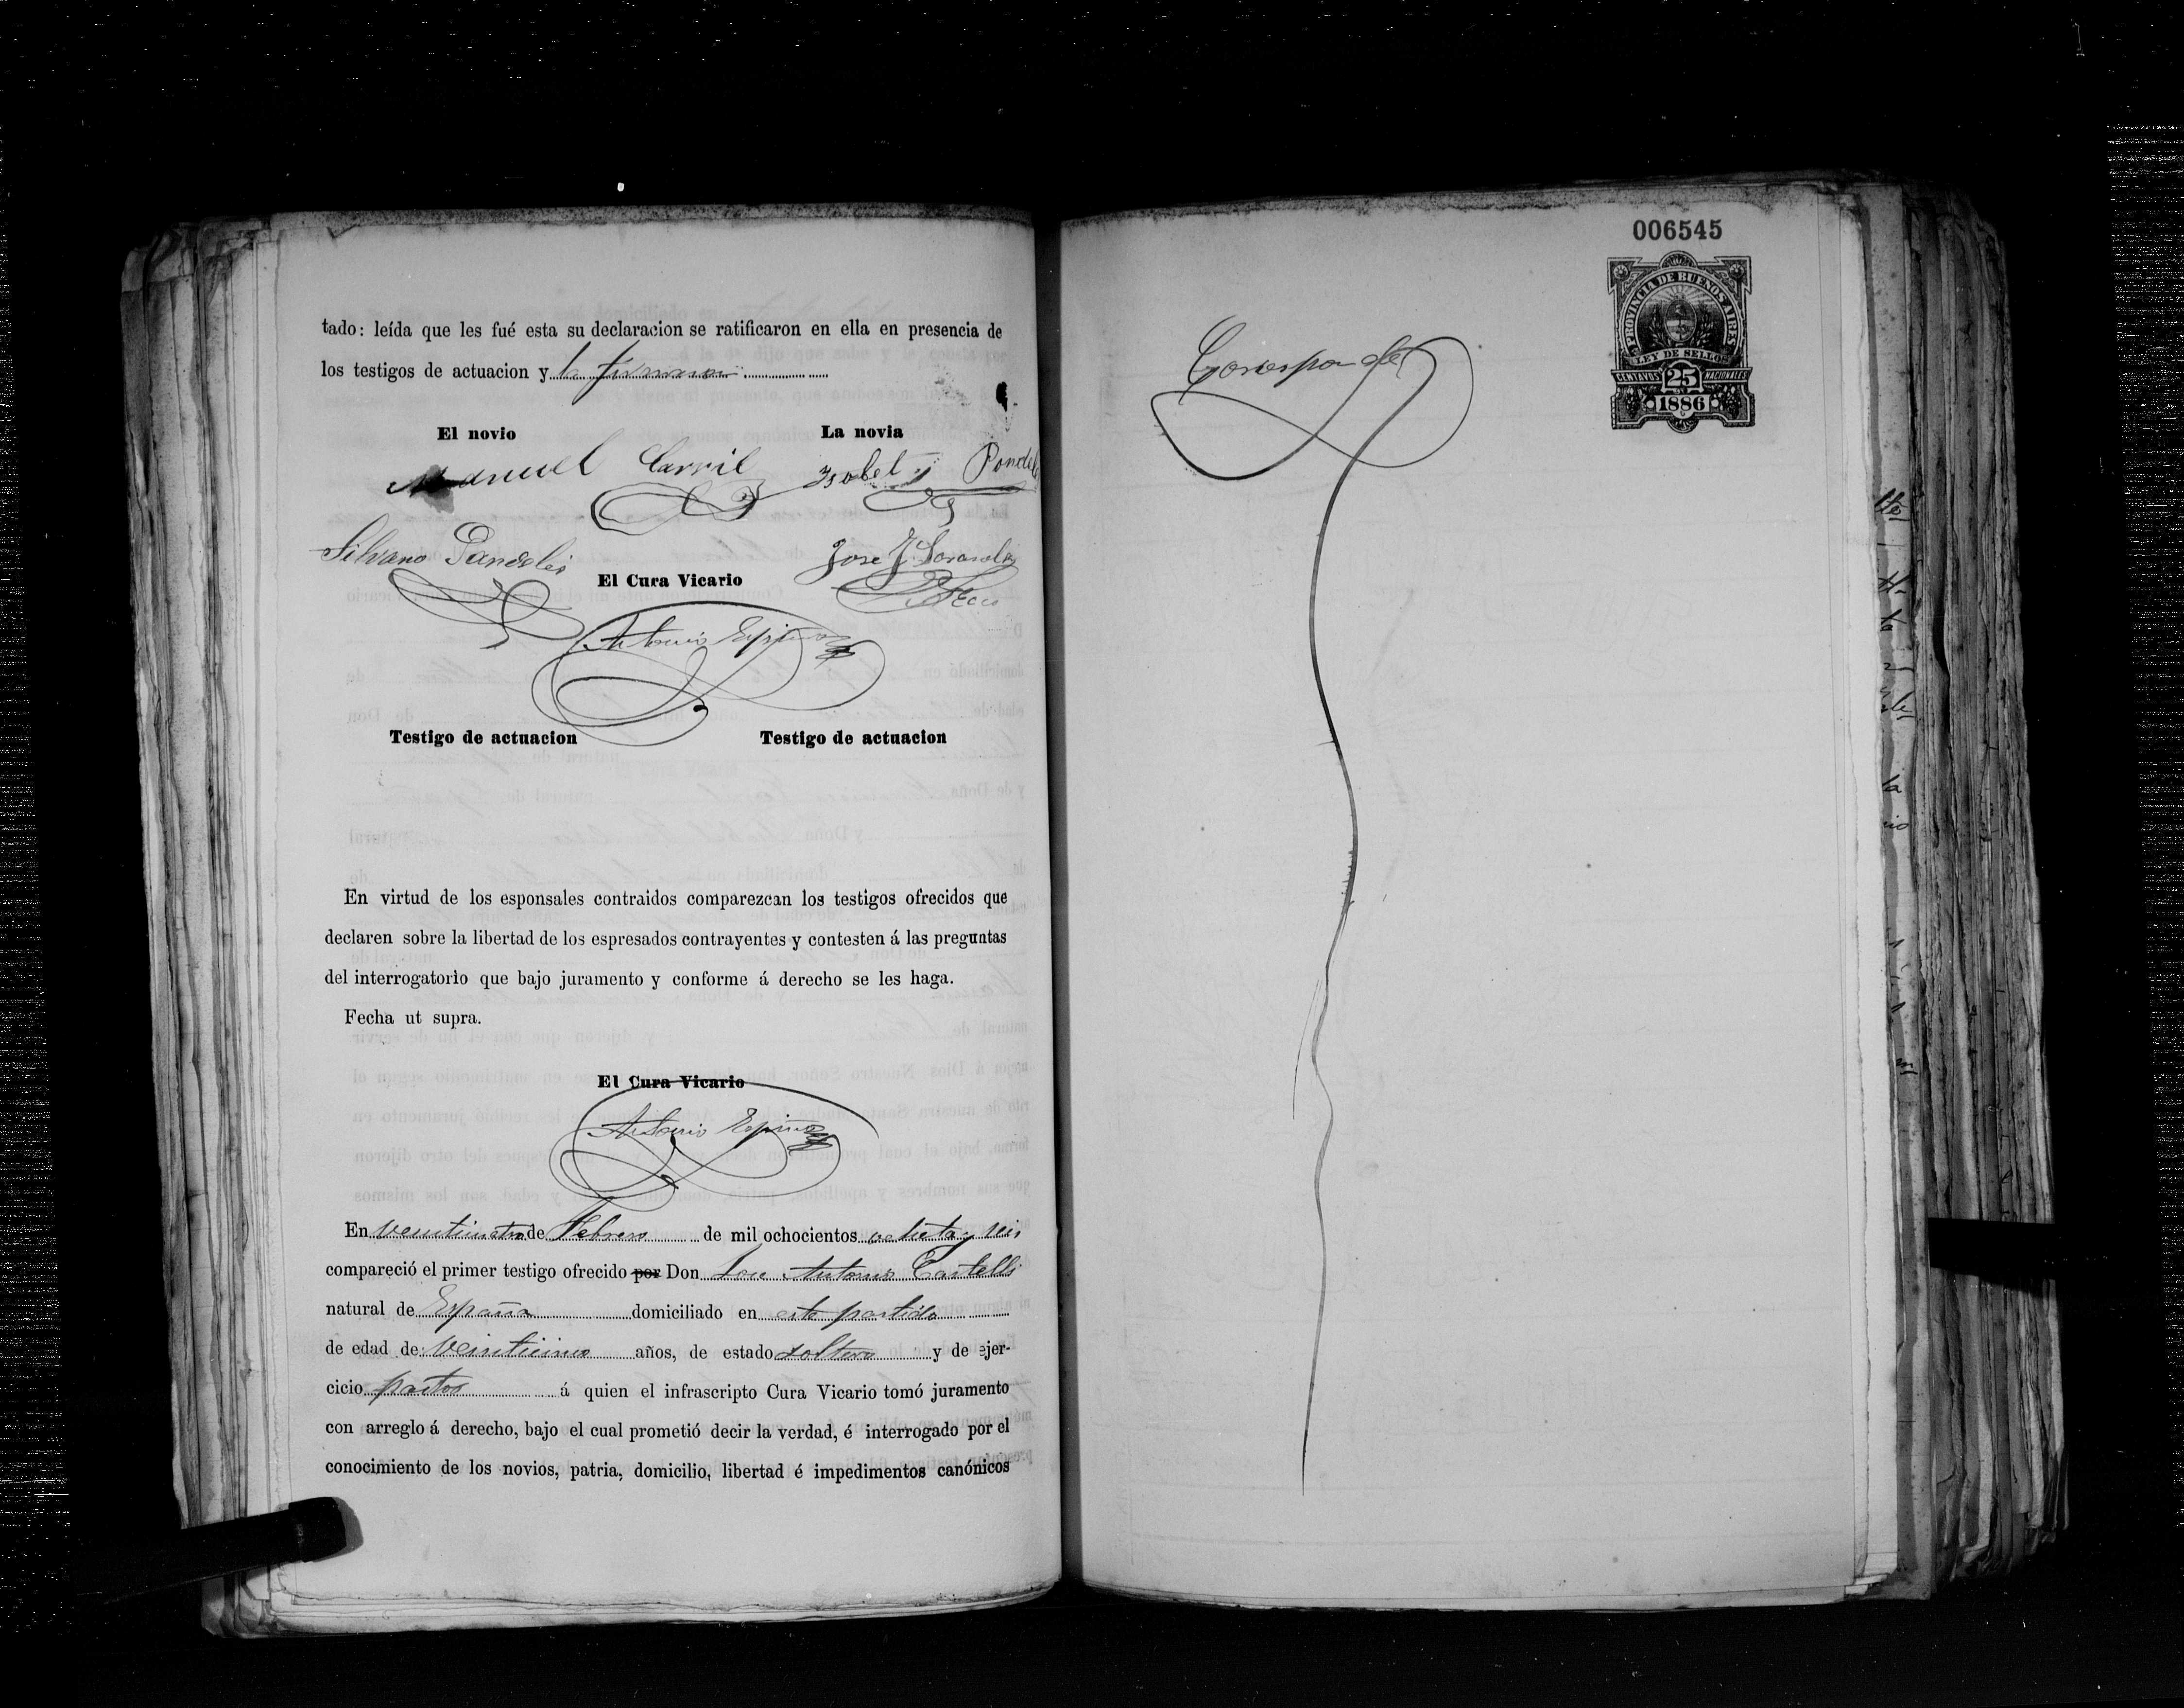 tado: leída que les fué esta su declaracion se ratificaron en ella en presencia de
los testigos de actuacion y lo firmaron
El novio La novia
Manuel Carril Isabel
Silvano Jose
El Cura Vicario
Antonio Espinosa
Testigo de actuacion Testigo de actuacion
En virtud de los esponsales contraidos comparezcan los testigos ofrecidos que
declaren sobre la libertad de los espresados contrayentes y contesten á las preguntas
del interrogatorio que bajo juramento y conforme á derecho se les haga.
Fecha ut supra.
El Cura Vicario
Antonio Espinosa
En de Febrero de mil ochocientos ochenta y seis
compareció el primer testigo ofrecido por Don Antonio Castelli
natural de España domiciliado en este partido
de edad de años, de estado soltero y de ejer-
cicio á quien el infrascripto Cura Vicario tomó juramento
con arreglo á derecho, bajo el cual prometió decir la verdad, é interrogado por el
conocimiento de los novios, patria, domicilio, libertad é impedimentos canónicos
006545
PROVINCIA DE BUENOS AIRES
LEY DE SELLOS
CENTAVOS 25 NACIONALES
1886
Corresponde